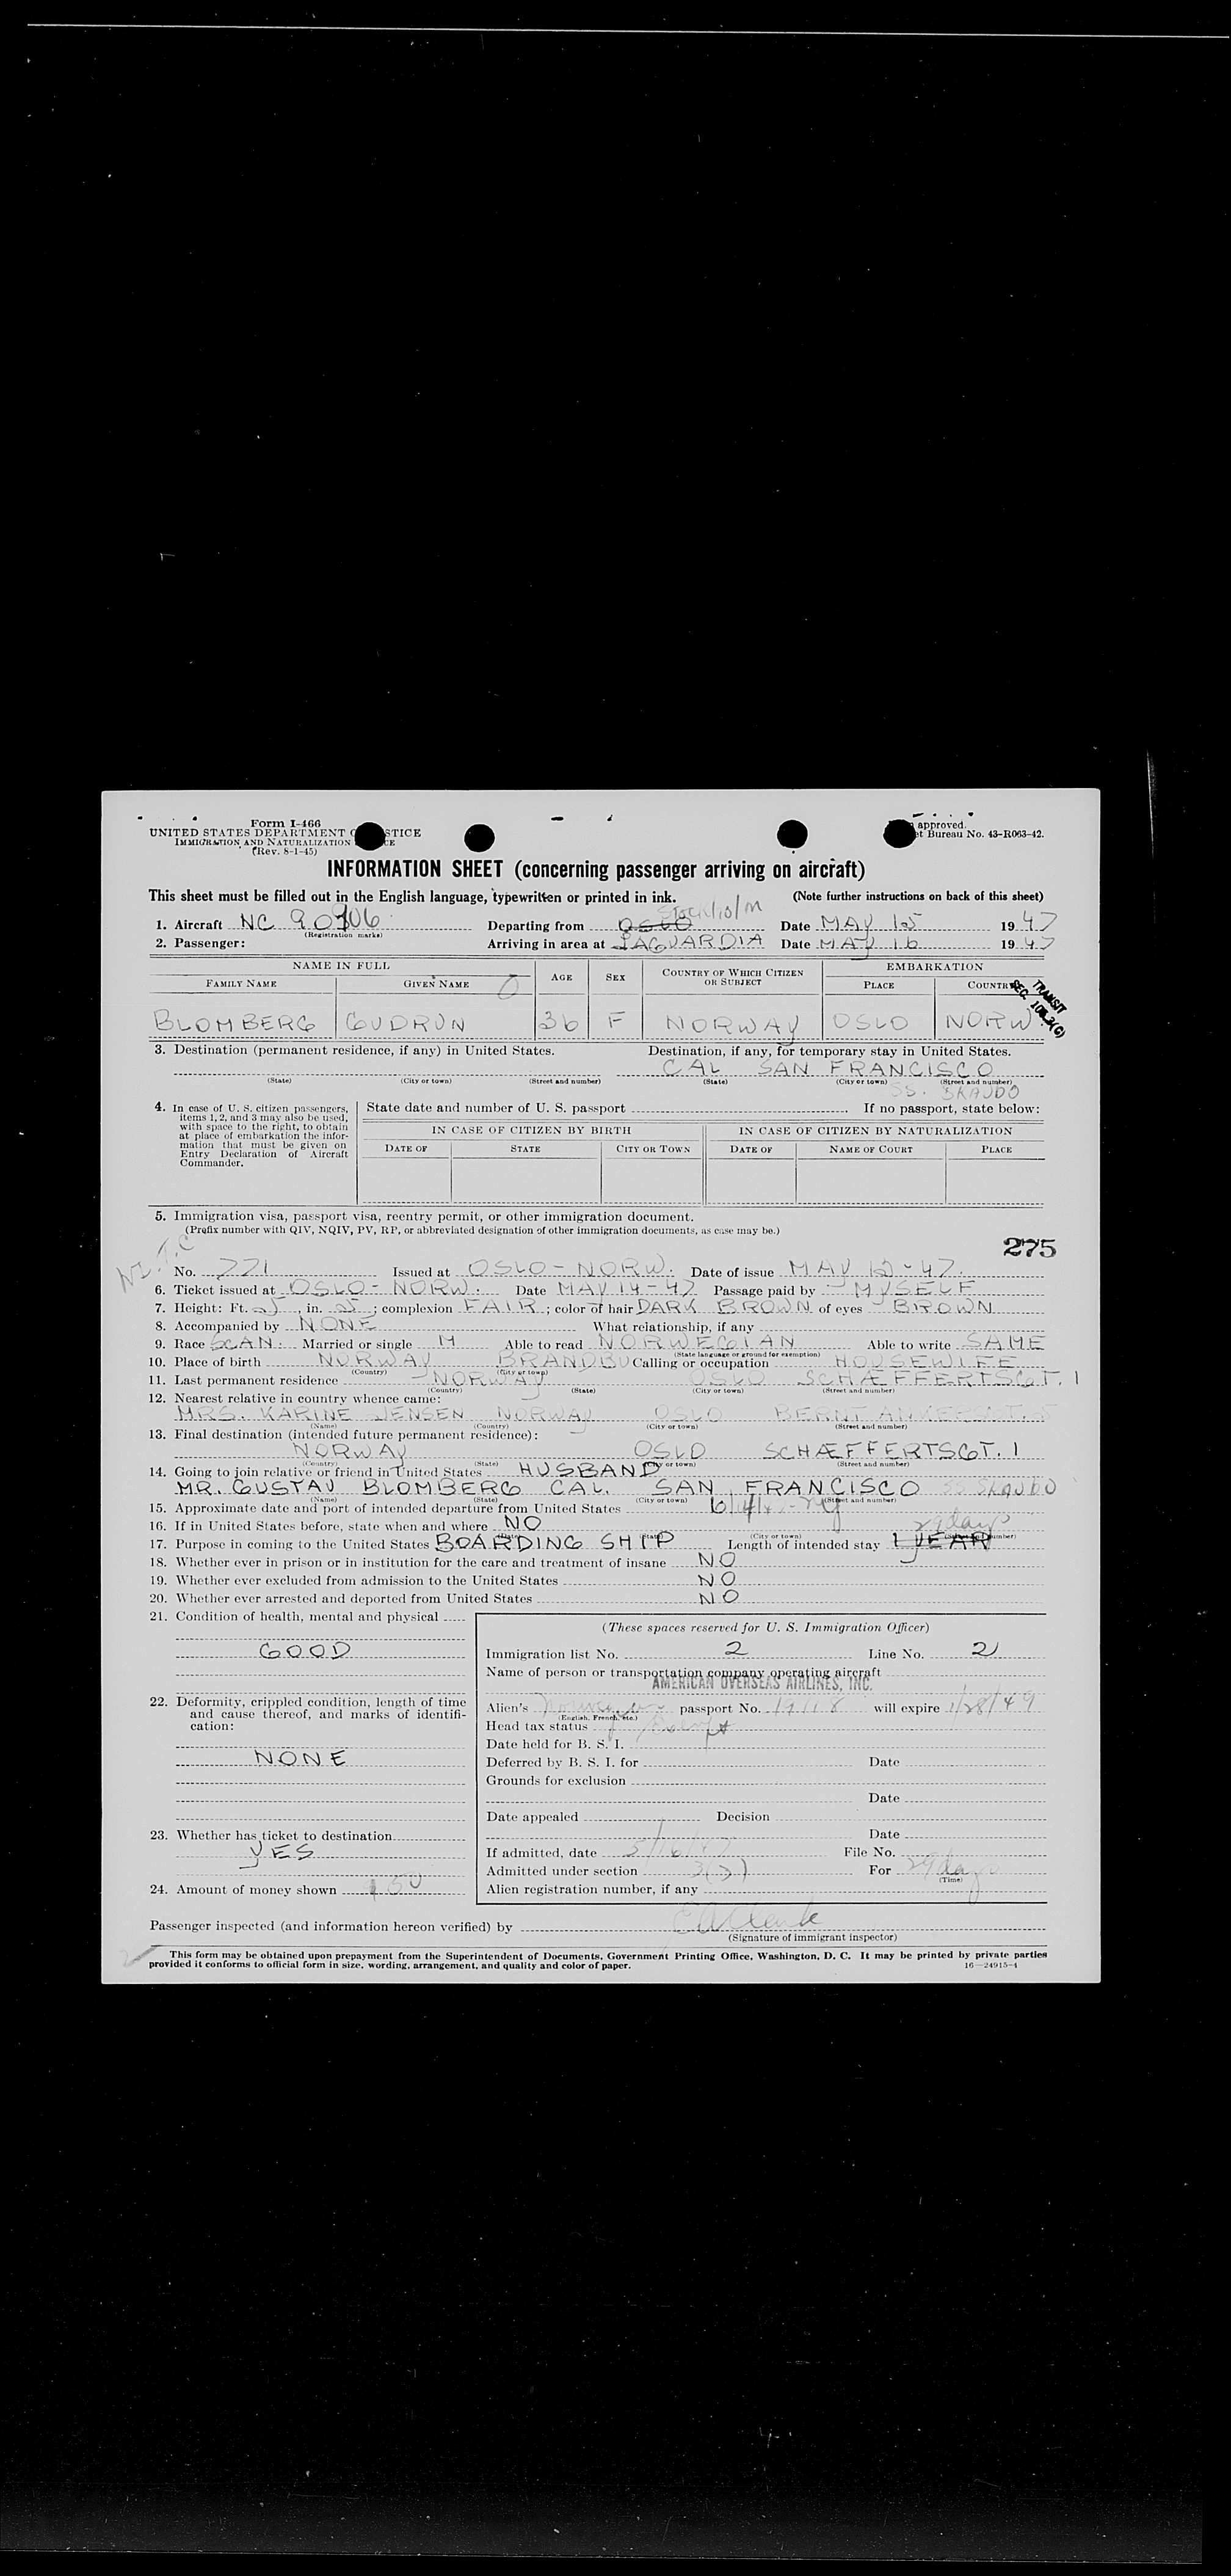 Form I-466
UNITED STATES DEPARTMENT STICE
IMMIGRATION AND NATURALIZATION
(Rev. 8-1-45)
approved.
t Bureau No. 43-R063-42.
INFORMATION SHEET (concerning passenger arriving on aircraft)
This sheet must be filled out in the English language, typewritten or printed in ink. (Note further instructions on back of this sheet)
Stockholm
1. Aircraft NC 90906 Departing from OSLO Date MAY 15 1947
(Registration marks)
2. Passenger: Arriving in area at LAGUARDIA Date MAY 16 1947
NAME IN FULL AGE SEX COUNTRY OF WHICH CITIZEN OR SUBJECT EMBARKATION
FAMILY NAME GIVEN NAME PLACE COUNTRY
TRANSIT
SEC. 10 3(G)
BLOMBERG GUDRUN 36 F NORWAY OSLO NORW.
3. Destination (permanent residence, if any) in United States. Destination, if any, for temporary stay in United States.
CAL SAN FRANCISCO
(State) (City or town) (Street and number) (State) (City or town) (Street and number)
SS. SKAUBO
4. In case of U. S. citizen passengers, items 1, 2, and 3 may also be used, with space to the right, to obtain at place of embarkation the information that must be given on Entry Declaration of Aircraft Commander.
State date and number of U. S. passport If no passport, state below:
IN CASE OF CITIZEN BY BIRTH IN CASE OF CITIZEN BY NATURALIZATION
DATE OF STATE CITY OR TOWN DATE OF NAME OF COURT PLACE
5. Immigration visa, passport visa, reentry permit, or other immigration document.
(Prefix number with QIV, NQIV, PV, RP, or abbreviated designation of other immigration documents, as case may be.)
275
No. 221 Issued at OSLO-NORW. Date of issue MAY 12-47.
6. Ticket issued at OSLO-NORW. Date MAY 14-47 Passage paid by MYSELF
7. Height: Ft. 5, in. 5; complexion FAIR; color of hair DARK BROWN of eyes BROWN
8. Accompanied by NONE What relationship, if any
9. Race SCAN. Married or single M Able to read NORWEGIAN Able to write SAME
(State language or ground for exemption)
10. Place of birth NORWAY BRANDBU Calling or occupation HOUSEWIFE
(Country) (City or town)
11. Last permanent residence NORWAY OSLO SCHÆFFERTSGT. 1
(Country) (State) (City or town) (Street and number)
12. Nearest relative in country whence came:
MRS. KARINE JENSEN NORWAY OSLO BERNT
(Name) (Country) (City or town) (Street and number)
13. Final destination (intended future permanent residence):
NORWAY OSLO SCHÆFFERTSGT. 1
(Country) (State) (City or town) (Street and number)
14. Going to join relative or friend in United States HUSBAND
MR. GUSTAV BLOMBERG CAL. SAN FRANCISCO SS SKAUBO
(Name) (State) (City or town) (Street and number)
15. Approximate date and port of intended departure from United States 6/14/47-NY
16. If in United States before, state when and where NO
(Date) (State) (City or town) (Street and number)
29 days
17. Purpose in coming to the United States BOARDING SHIP Length of intended stay 1 YEAR
18. Whether ever in prison or in institution for the care and treatment of insane NO
19. Whether ever excluded from admission to the United States NO
20. Whether ever arrested and deported from United States NO
21. Condition of health, mental and physical
GOOD
22. Deformity, crippled condition, length of time and cause thereof, and marks of identification:
NONE
23. Whether has ticket to destination
YES
24. Amount of money shown 150
(These spaces reserved for U. S. Immigration Officer)
Immigration list No. 2 Line No. 2
Name of person or transportation company operating aircraft
AMERICAN OVERSEAS AIRLINES, INC.
Alien's Norwegian passport No. 19118 will expire 1/28/49
(English, French, etc.)
Head tax status
Date held for B. S. I.
Deferred by B. S. I. for Date
Grounds for exclusion
Date
Date appealed Decision
Date
If admitted, date 5/16/47 File No.
Admitted under section 3(3) For 29 days
(Time)
Alien registration number, if any
Passenger inspected (and information hereon verified) by
(Signature of immigrant inspector)
This form may be obtained upon prepayment from the Superintendent of Documents, Government Printing Office, Washington, D. C. It may be printed by private parties
provided it conforms to official form in size, wording, arrangement, and quality and color of paper. 16—24915-1